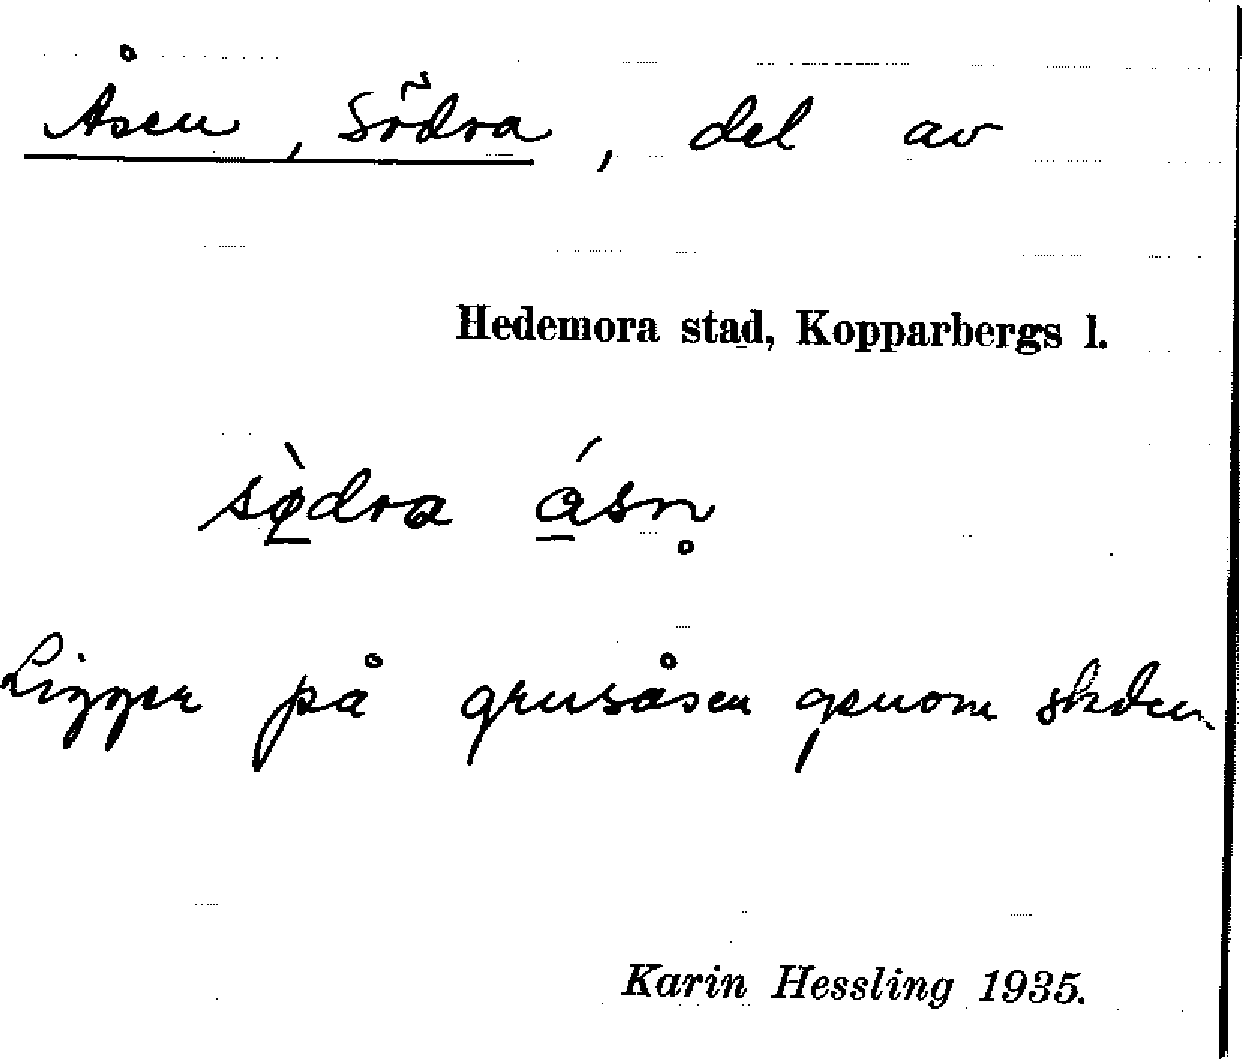 Åsen, Södra, del av
Hedemora stad, Kopparbergs l.
sø̱̀dra á̱sn̥
Ligger på grusåsen genom staden
Karin Hessling 1935.